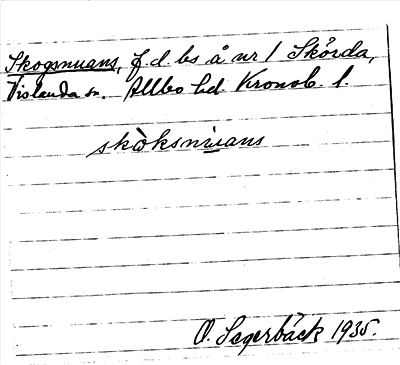 Skogsnuans, f.d. bs å nr 1 Skörda,
Vislanda sn. Allbo hd Kronob. l.
skòksnuans
O. Segerbäck 1935.